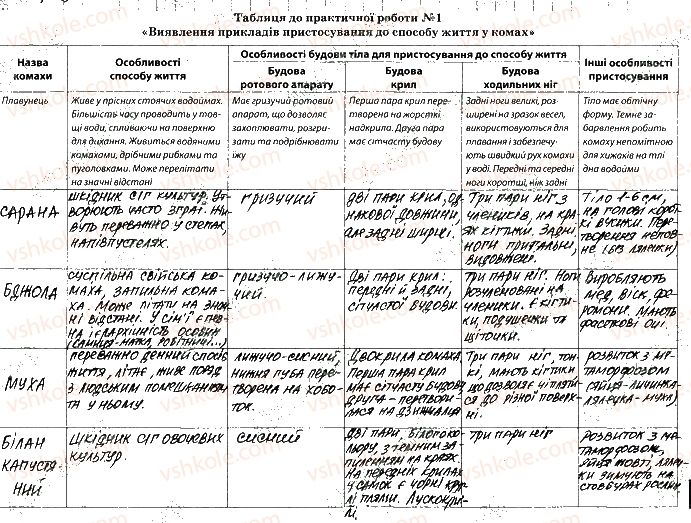 Таблиця до практичної роботи №1
«Виявлення прикладів пристосування до способу життя у комах»
Назва комахи
Особливості способу життя
Особливості будови тіла для пристосування до способу життя
Будова ротового апарату
Будова крил
Будова ходильних ніг
Інші особливості пристосування
Плавунець
Живе у прісних стоячих водоймах.
Більшість часу проводить у тов-
щі води, спливаючи на поверхню
для дихання. Живиться водяними
комахами, дрібними рибками та
пуголовками. Може перелітати
на значні відстані
Має гризучий ротовий
апарат, що дозволяє
захоплювати, розгри-
зати та подрібнювати
їжу
Перша пара крил пере-
творена на жорсткі
надкрила. Друга пара
має сітчасту будову
Задні ноги великі, роз-
ширені на зразок весел,
використовуються для
плавання і забезпечу-
ють швидкий рух комахи
у воді. Передні та середні
ноги коротші, ніж задні
Тіло має обтічну
форму. Темне за-
барвлення робить
комаху непомітною
для хижаків на тлі
дна водойми
САРАНА
Шкідник с/г культур. Ут-
ворюють часто зграї. Жи-
вуть переважно у степах,
напівпустелях.
гризучий
Дві пари крил, од-
накової довжини,
але задні ширші.
Три пари ніг з
члеників, на кра-
ях кігтики. Задні
ноги стрибальні,
видовжені.
Тіло 1-6 см,
на голові корот-
кі вусики. Пере-
творення непов-
не (без лялечки)
БДЖОЛА
Суспільна свійська ко-
маха, запильна кома-
ха. Може літати на знач-
ні відстані. У сім'ї є пев-
на ієрархічність особин
(самиця-матка, робітниці...)
гризучо-лижу-
чий.
Дві пари крил:
передні й задні,
сітчастої будови.
Три пари ніг. Ноги
розчленовані на
членики. Є кігти-
ки, подушечки та
щіточки.
Виробляють
мед, віск, фе-
ромони. Мають
фасеткові очі.
МУХА
переважно денний спосіб
життя, літає, живе поряд
з людським помешканням
та у ньому.
лижучо-сисний,
нижня губа пере-
творена на хобо-
ток.
Двокрила комаха.
Перша пара крил
має сітчасту будову,
друга - перетвори-
лася на дзижчальця
Три пари ніг, тон-
кі, мають кігтики
що дозволяє чіпляти-
ся до різної поверх-
ні.
розвиток з ме-
таморфозом
(яйця-личинка-
лялечка-муха)
БІЛАН
КАПУСТЯ-
НИЙ
Шкідник с/г овочевих
культур.
сисний
Дві пари, білого ко-
льору, з темним за-
пиленням на краях.
На передніх крилах
у самок є чорні круг-
лі плями. Лускокри-
лі.
Три пари ніг
Розвиток з ме-
таморфозом,
яйця жовті, ляле-
чки зимують на
стовбурах рослин